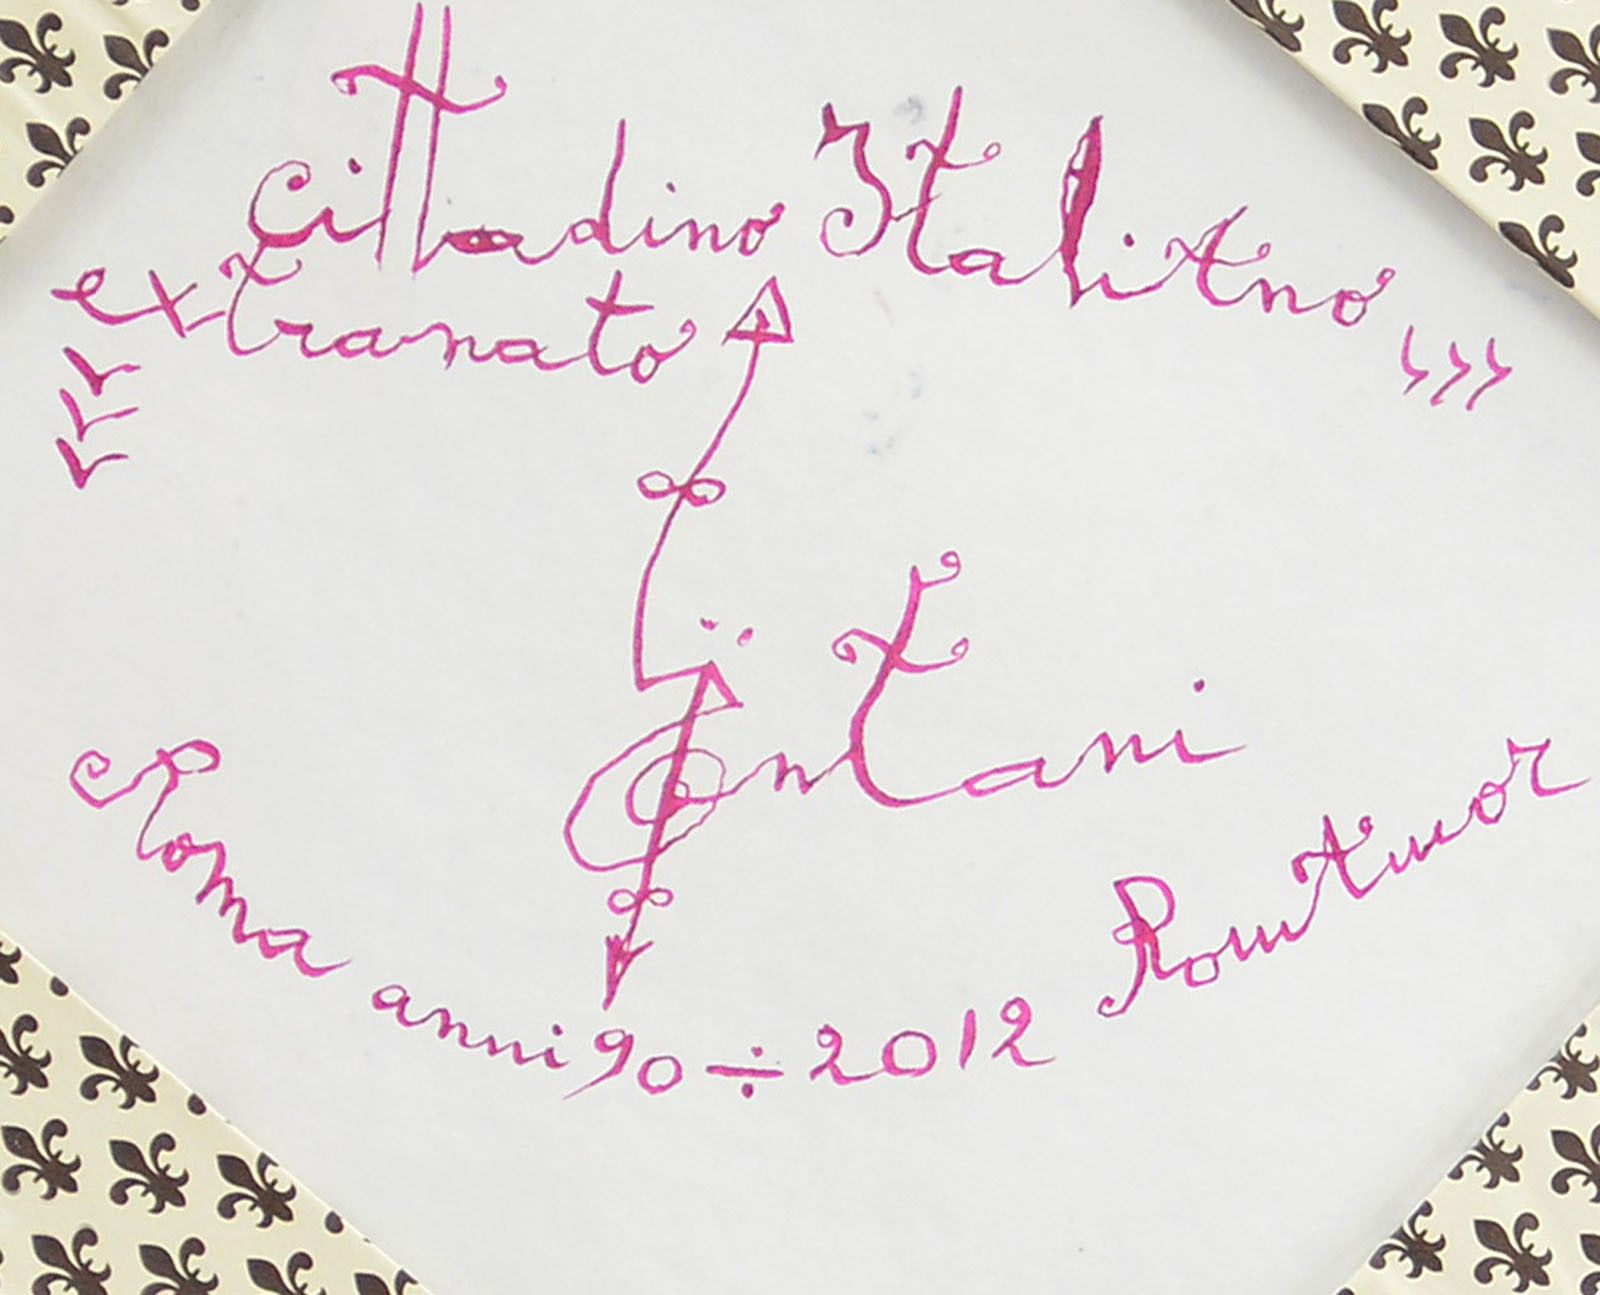 cittadino Italitno >>>
extranato
öntani
Roma anni 90 ÷ 2012 Romtuor